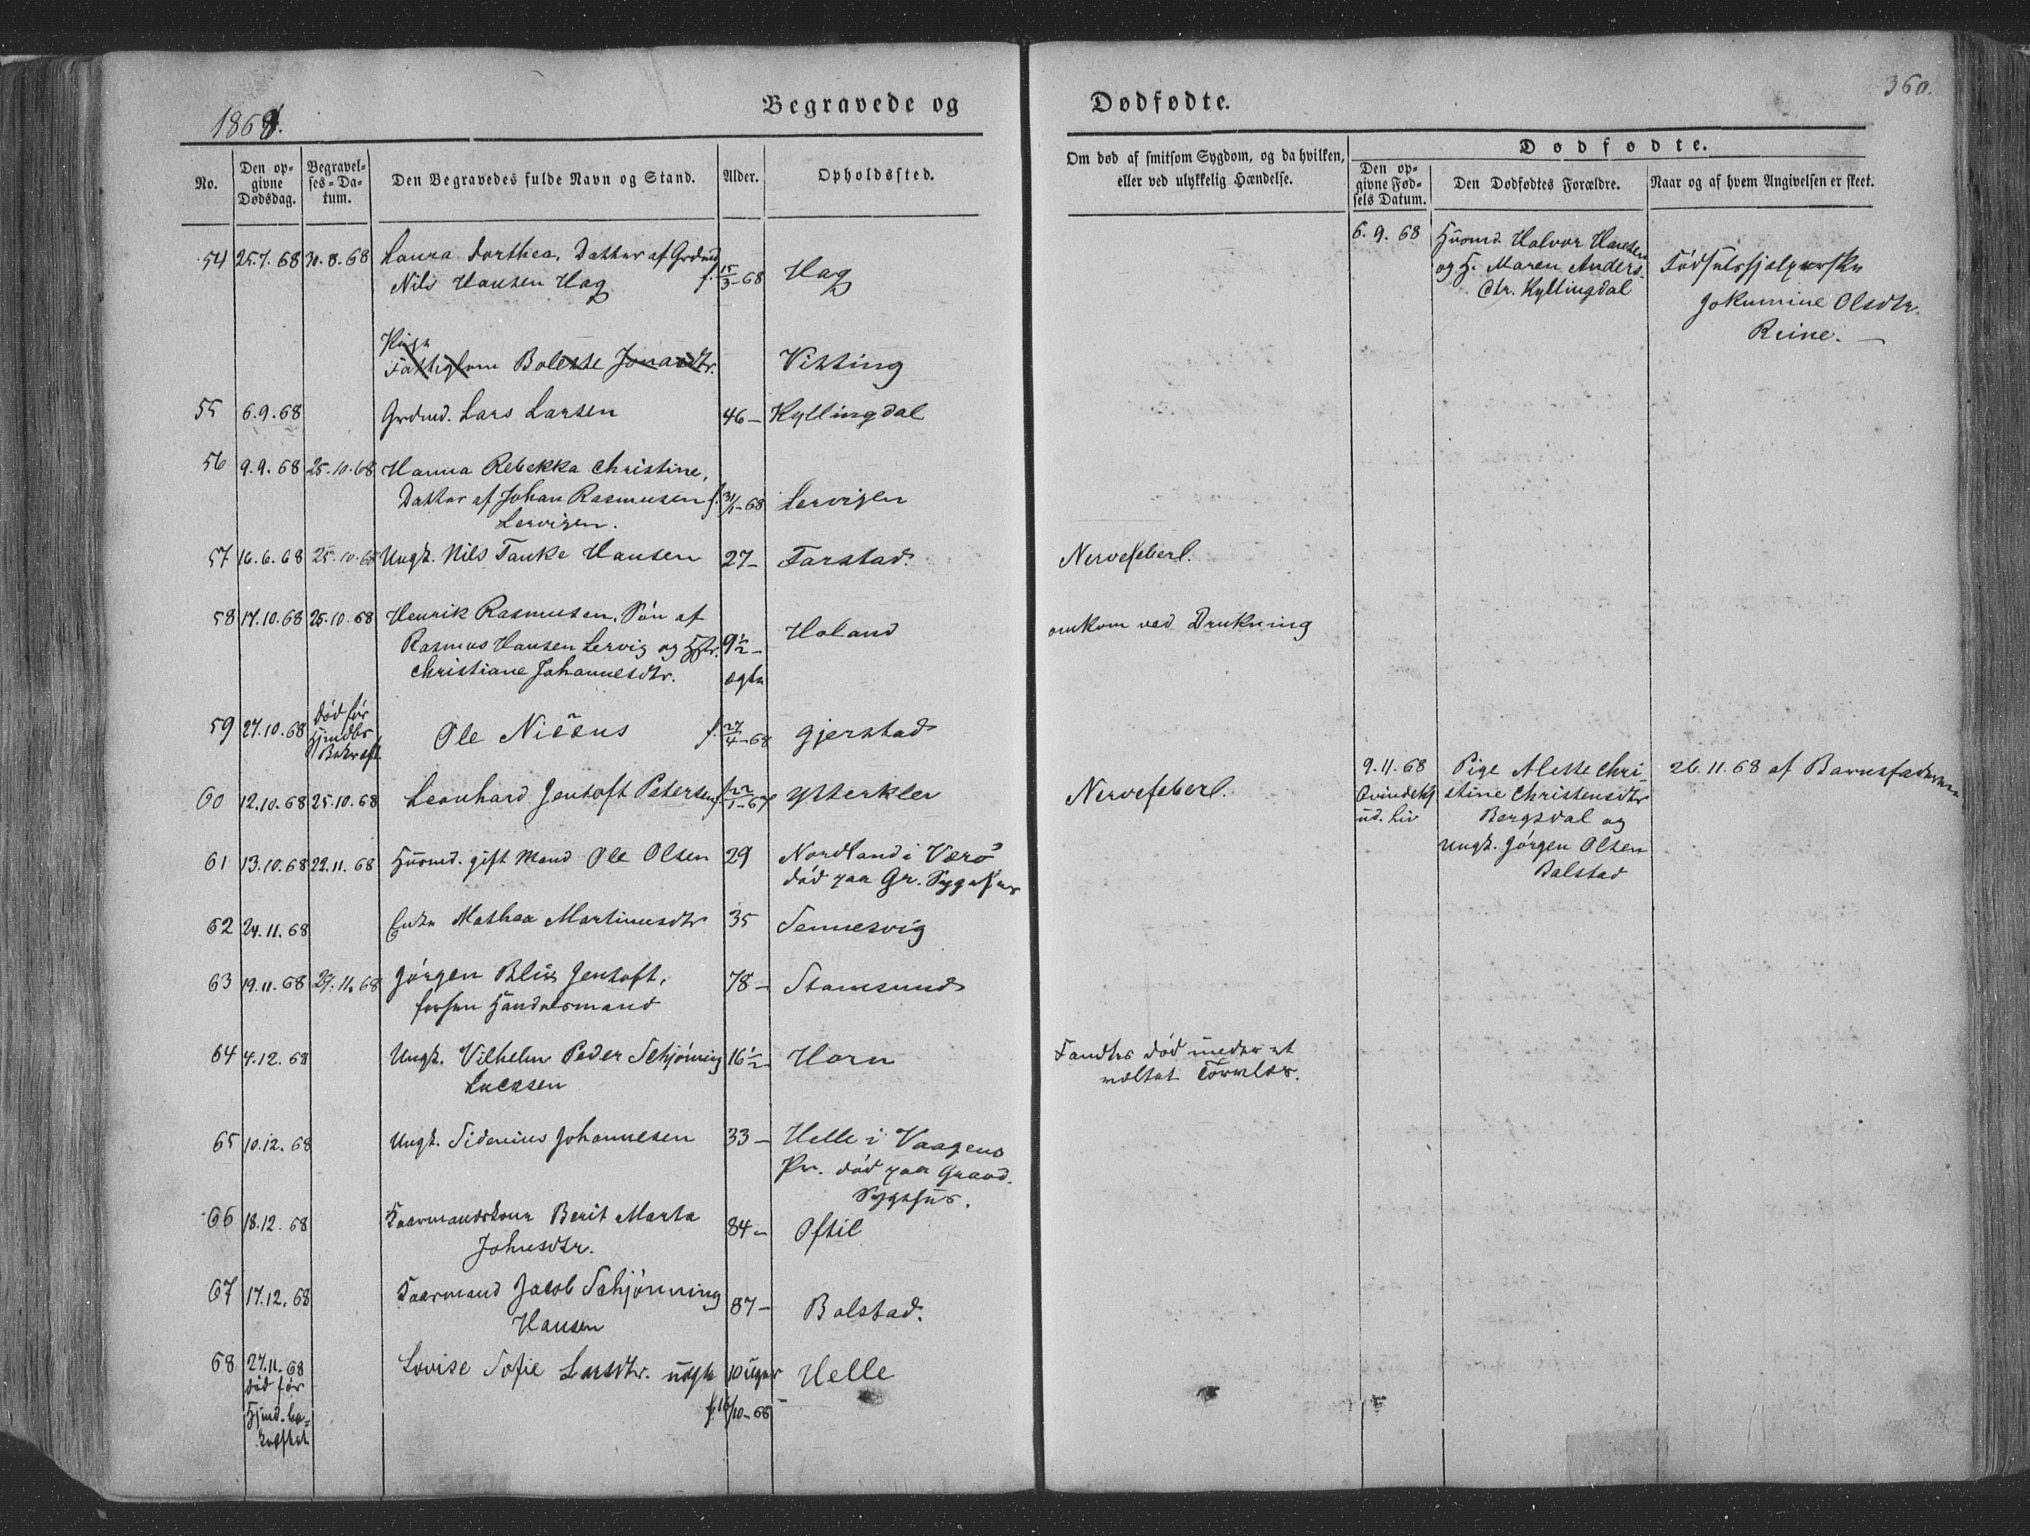 1868.
Begravede og
Dødfødte.
360.
No.
Den opgivne Dødsdag.
Begravelses-Datum.
Den Begravedes fulde Navn og Stand.
Alder.
Opholdssted.
Om død af smitsom Sygdom, og da hvilken,
eller ved ulykkelig Hændelse.
Dødfødte.
Den opgivne Fødsels Datum.
Den Dødfødtes Forældre.
Naar og af hvem Angivelsen er skeet.
54 25.7.68 30.8.68 Laura Dorthea, Datter af Grdmd
Nils Hansen Hag f. 15/3-68 Hag
6.9.68 Huusmd. Halvor Hansen
og H. Maren Anders
dtr. Kyllingdal
Fødselshjelperske
Jokumine Olsdtr.
Reine.
Pige
Fattiglem Bolette Jonasdtr. Vikting
55 6.9.68 Grdmd. Lars Larsen 46 - Kyllingdal
56 9.9.68 25.10.68 Hanna Rebekka Christine,
Datter af Johan Rasmusen f. 31/1-68 Lervigen
Lervigen.
57 16.6.68 25.10.68 Ungk. Nils Tanke Hansen 27 - Farstad. Nervefeberl.
58 17.10.68 25.10.68 Henrik Rasmusen, Søn af
Rasmus Hansen Lervig og Hstr. 9 1/2 - Holand omkom ved Drukning
Christiane Johannesdtr. ægte
59 27.10.68 Død før Hjmdbs Bekræft. Ole Nicëus f. 27/4-68 Gjerstad
60 12.10.68 25.10.68 Leonhard Jentoft Petersen f. 22/1-67 Ytterkler Nervefeberl.
9.11.68
Qvindekj
ud. Liv
Pige Alette Chri-
stine Christensdtr
Bergsdal og
Ungk. Jørgen Olsen
Balstad
26.11.68 af Barnefaderen
61 13.10.68 22.11.68 Huusmd. gift Mand Ole Olsen 29 Nordland i Værø
død paa Gr. Sygehus
62 24.11.68 Enke Mathea Martinusdtr 35 Sennesvig
63 19.11.68 27.11.68 Jørgen Blix Jentoft, 78 - Stamsund
forhen Handelsmand
64 4.12.68 Ungk. Vilhelm Peder Schjønning 16 1/2 - Horn
Lucasen
Fandtes død under et
væltet Torvlæs.
65 10.12.68 Ungk. Sidenius Johannesen 33 - Helle i Vaagens
Pr. død paa Gravd.
Sygehus.
66 18.12.68 Kaarmandskone Berit Marta 84 - Oftil
Johnsdtr.
67 17.12.68 Kaarmand Jacob Schjønning 87 - Balstad.
Hansen
68 27.11.68 Lovise Sofie Larsdtr. uægte 10 Uger Helle
død før
Hjmd. be-
kræftet
f. 16/10-68